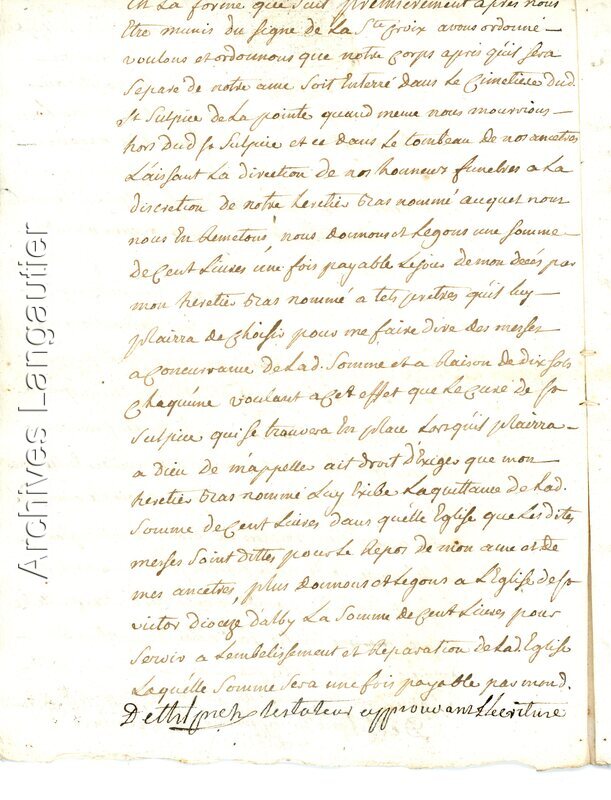 En la forme que suit premierement apres nous
Etre munis du signe de la Ste Croix avons ordonné
voulons et ordonnons que notre Corps apres qu'il sera
separe de notre ame soit Enterré dans le Cimetiere dud.
St Sulpice de la pointe quand meme nous mourrions
hors dud St Sulpice et ce dans le tombeau de nos ancetres
Laissant La direction de nos honneurs funebres a La
discretion de notre heretier bas nommé auquel nous
nous En Remetons, nous donnons et Legons une somme
de Cent Livres une fois payable Le jour de mon decés par
mon heretier bas nommé a tels pretres qu'il luy
plairra de Choisir pour me faire dire des messes
a Concurrance de Lad. Somme et a Raison de dix sols
Chaquune voulant a Cet effet que Le Curé de St
Sulpice qui se trouvera En place Lorsqu'il plairra
a Dieu de m'appelle ait droit d'Exiger que mon
heretier bas nommé Luy Exibe La quittance de Lad.
Somme de Cent Livres dans quélle Eglise que Les dites
messes Soint dittes pour Le Repos de mon ame et de
mes ancetres, plus donnons et Legons a L'Eglise de St
victor Dioceze d'alby La Somme de Cent Livres pour
Servir a Lembelissement et Reparation de Lad Eglise
Laquélle Somme Sera une fois payable par mond.
testateur approuvant L'ecriture
Archives Langautier